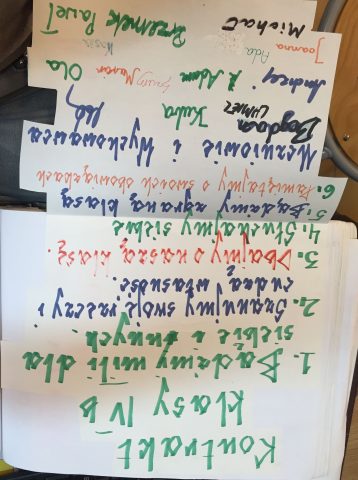 Kontrakt
klasy IV b
1. Bądźmy mili dla
siebie i innych.
2. Szanujmy swoje rzeczy i
cudzą własność.
3. Dbajmy o naszą klasę.
4. Słuchajmy siebie
5. Bądźmy zgraną klasą
6. Pamiętajmy o swoich obowiązkach
Uczniowie i Wychowawca
Bogdan Kuba
Andrzej Adam Ola
Joanna Ada Kasia
Michał Przemek Paweł